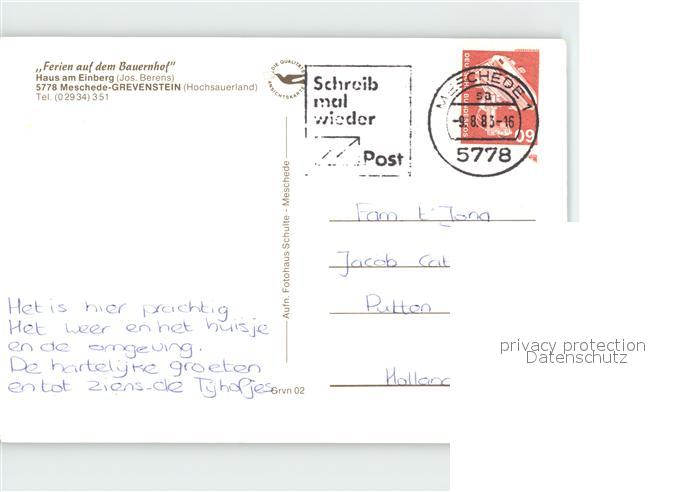 „Ferien auf dem Bauernhof"
Haus am Einberg (Jos. Berens)
5778 Meschede-GREVENSTEIN (Hochsauerland)
Tel. (02934) 351
DIE QUALITÄTS
ANSICHTSKARTE
Schreib
mal
wieder
Post
MESCHEDE 1
sa
-9.8.83-16
5778
Aufn. Fotohaus Schulte - Meschede
Fam t' Jong
Jacob Cat
Putten
Holland
Het is hier prachtig
Het weer en het huisje
en de omgeving.
De hartelijke groeten
en tot ziens-de Tijhofjes
Grvn 02
privacy protection
Datenschutz